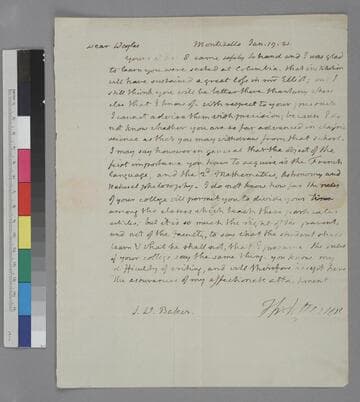 Dear Wayles Monticello Jan. 19. 21
Yours of the 8 came safely to hand and I was glad
to learn you were seated at Columbia. that institution
will have sustained a great loss in mr Elliot, but I
still think you will be better there than any where
else that I know of. with respect to your pursuits
I cannot advise them with precision, because I do
not know whether you are so far advanced in
science as that you may withdraw from that school.
I may say however in general that the object of the
first importance you have to acquire is the French
language, and the 2d Mathematics, Astronomy and
Natural philosophy. I do not know how far the rules
of your college will permit you to divide your time
among the classes which teach these particular
articles. but it is so much the right of the parents
and not of the faculty, to say what the student shall
learn & what he shall not, that I presume the rules
of your college say the same thing. you know my
difficulty of writing, and will therefore accept here
the assurances of my affectionate attachment
Th: Jefferson
J. W. Baker.